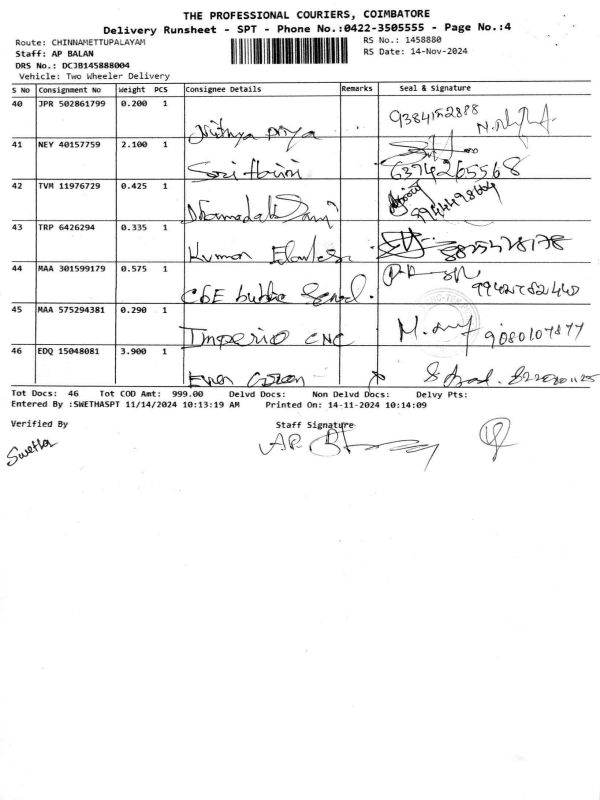 THE PROFESSIONAL COURIERS, COIMBATORE
Delivery Runsheet - SPT - Phone No.:0422-3505555 - Page No.:4
Route: CHINNAMETTUPALAYAM
RS No.: 1458880
Staff: AP BALAN
RS Date: 14-Nov-2024
DRS No.: DCJB145888004
Vehicle: Two Wheeler Delivery
S No Consignment No Weight PCS Consignee Details Remarks Seal & Signature
40 JPR 502861799 0.200 1 Nithya Priya 9384152888
41 NEY 40157759 2.100 1 6374265568
42 TVM 11976729 0.425 1
43 TRP 6426294 0.335 1 Kumar
44 MAA 301599179 0.575 1 CBE Public School.
45 MAA 575294381 0.290 1 Imperio CNC 9080107877
46 EDQ 15048081 3.900 1
Tot Docs: 46 Tot COD Amt: 999.00 Delvd Docs: Non Delvd Docs: Delvy Pts:
Entered By :SWETHASPT 11/14/2024 10:13:19 AM Printed On: 14-11-2024 10:14:09
Verified By Staff Signature
Swetha